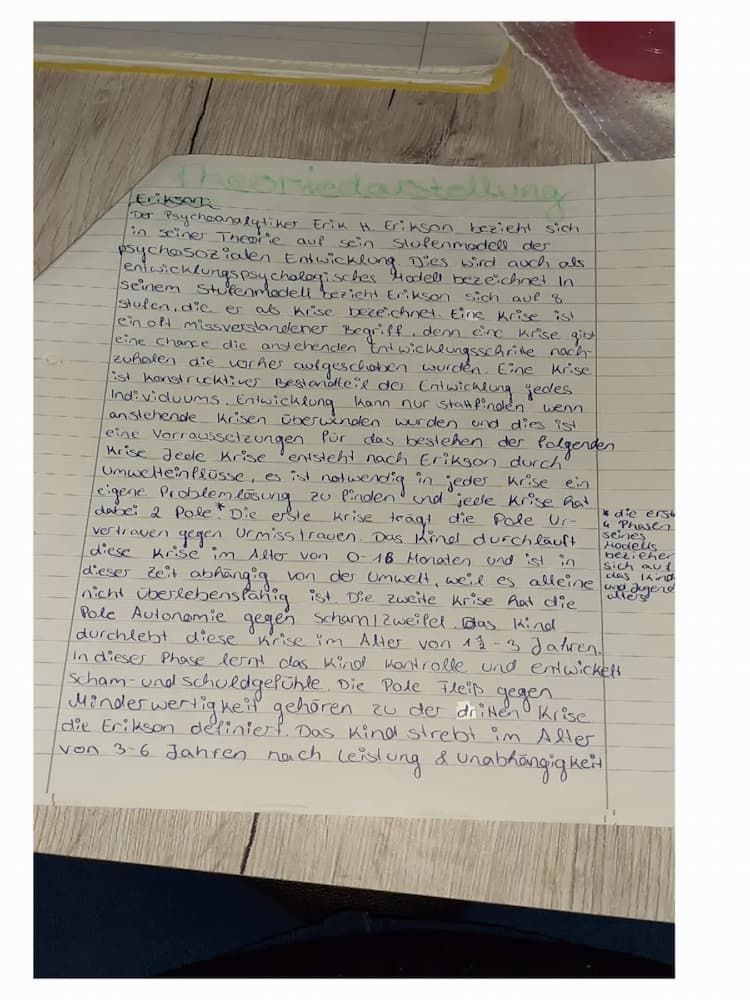 Theoriedarstellung
Erikson:
Der Psychoanalytiker Erik H. Erikson bezieht sich
in seiner Theorie auf sein Stufenmodell der
psychosozialen Entwicklung. Dies wird auch als
entwicklungspsychologisches Modell bezeichnet. In
seinem Stufenmodell bezieht Erikson sich auf 8
stufen, die er als Krise bezeichnet. Eine Krise ist
ein oft missverstandener Begriff, denn eine Krise gibt
eine Chance die anstehenden Entwicklungsschritte nach-
zuholen die vorher aufgeschoben wurden. Eine Krise
ist Konstrucktiver Bestandteil der Entwicklung jedes
Individuums. Entwicklung kann nur stattfinden wenn
anstehende Krisen überwunden wurden und dies ist
eine Vorraussetzungen für das bestehen der folgenden
Krise. Jede Krise entsteht nach Erikson durch
Umwelteinflüsse, es ist notwendig in jeder Krise ein
eigene Problemlösung zu finden und jede Krise hat
dabei 2 Pole.* Die erste Krise trägt die Pole Ur-
vertrauen gegen Urmisstrauen. Das Kind durchläuft
diese Krise im Alter von 0-18 Monaten und ist in
dieser Zeit abhängig von der Umwelt, weil es alleine
nicht überlebensfähig ist. Die zweite Krise hat die
Pole Autonomie gegen Scham/zweifel. Das Kind
durchlebt diese Krise im Alter von 1½-3 Jahren.
In dieser Phase lernt das Kind Kontrolle und entwickelt
Scham-und schuldgefühle. Die Pole Fleiß gegen
Minderwertigkeit gehören zu der dritten Krise
die Erikson definiert. Das Kind strebt im Alter
von 3-6 Jahren nach Leistung & unabhängigkeit
* die erst
4 Phasen
seines
Modells
beziehen
sich auf
das Kind
und Jugend
alters